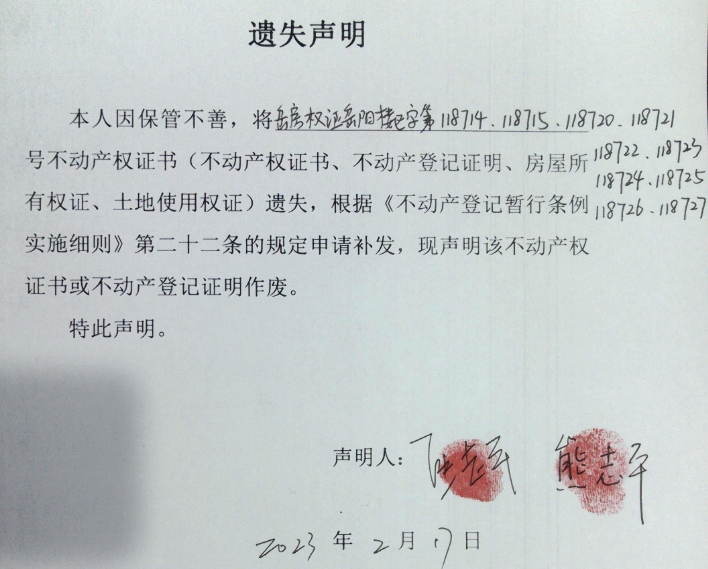 遗失声明
本人因保管不善，将岳房权证岳阳楼区字第118714、118715、118720、118721
118722、118723
号不动产权证书（不动产权证书、不动产登记证明、房屋所
118724、118725
有权证、土地使用权证）遗失，根据《不动产登记暂行条例
118726、118727
实施细则》第二十二条的规定申请补发，现声明该不动产权
证书或不动产登记证明作废。
特此声明。
声明人： 熊志平
2023年2月17日